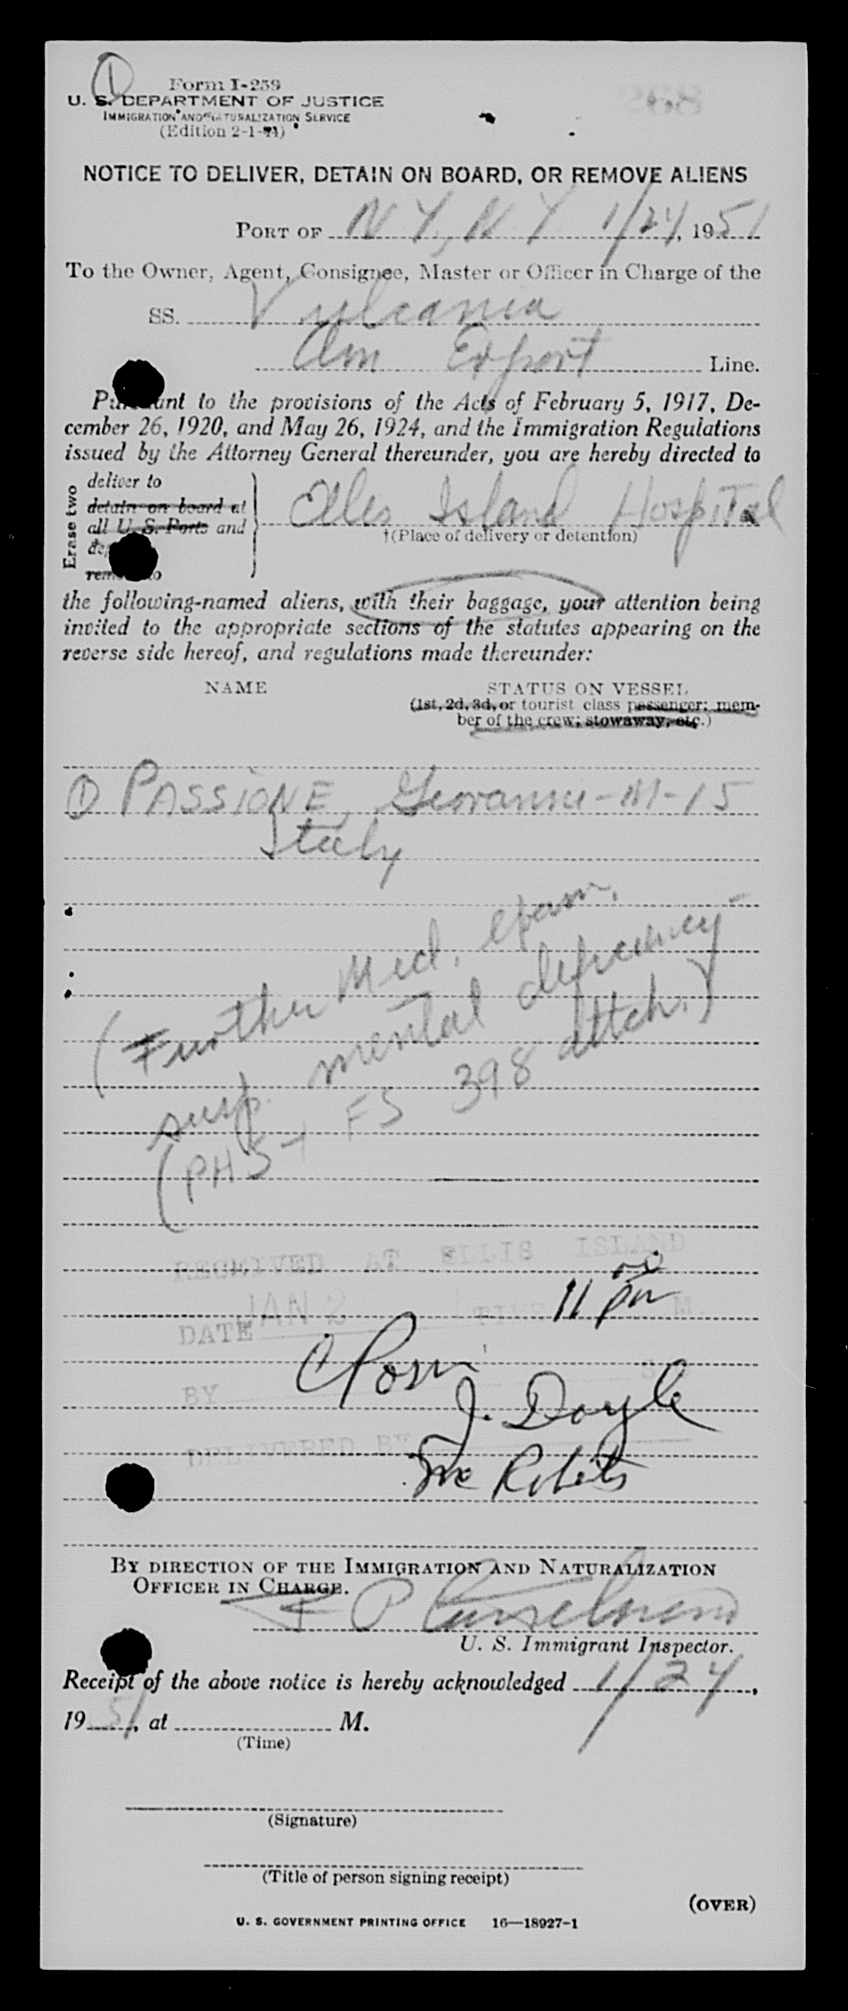 ①
Form I-259
U. S. DEPARTMENT OF JUSTICE
IMMIGRATION AND NATURALIZATION SERVICE
(Edition 2-1-)
NOTICE TO DELIVER, DETAIN ON BOARD, OR REMOVE ALIENS
PORT OF N Y, N Y 1/24, 1951
To the Owner, Agent, Consignee, Master or Officer in Charge of the
SS. Vulcania
Am Export Line.
Pursuant to the provisions of the Acts of February 5, 1917, De-
cember 26, 1920, and May 26, 1924, and the Immigration Regulations
issued by the Attorney General thereunder, you are hereby directed to
Erase two
deliver to
detain on board at
all U. S. Ports and
remove to
Ellis Island Hospital
†(Place of delivery or detention)
the following-named aliens, with their baggage, your attention being
invited to the appropriate sections of the statutes appearing on the
reverse side hereof, and regulations made thereunder:
NAME STATUS ON VESSEL
(1st, 2d, 3d, or tourist class passenger; mem-
ber of the crew; stowaway, etc.)
① PASSIONE, Giovanni - M - 15
Italy
(Further Med. exam.
susp. mental deficiency -
(PHS + FS 398 attch.)
RECEIVED AT ELLIS ISLAND
11 00 pm
DATE JAN 2 TIME M.
BY
J. Doyle
DELIVERED BY
BY DIRECTION OF THE IMMIGRATION AND NATURALIZATION
OFFICER IN CHARGE.
U. S. Immigrant Inspector.
Receipt of the above notice is hereby acknowledged 1/24,
1951, at M.
(Time)
(Signature)
(Title of person signing receipt)
(OVER)
U. S. GOVERNMENT PRINTING OFFICE 16—18927-1